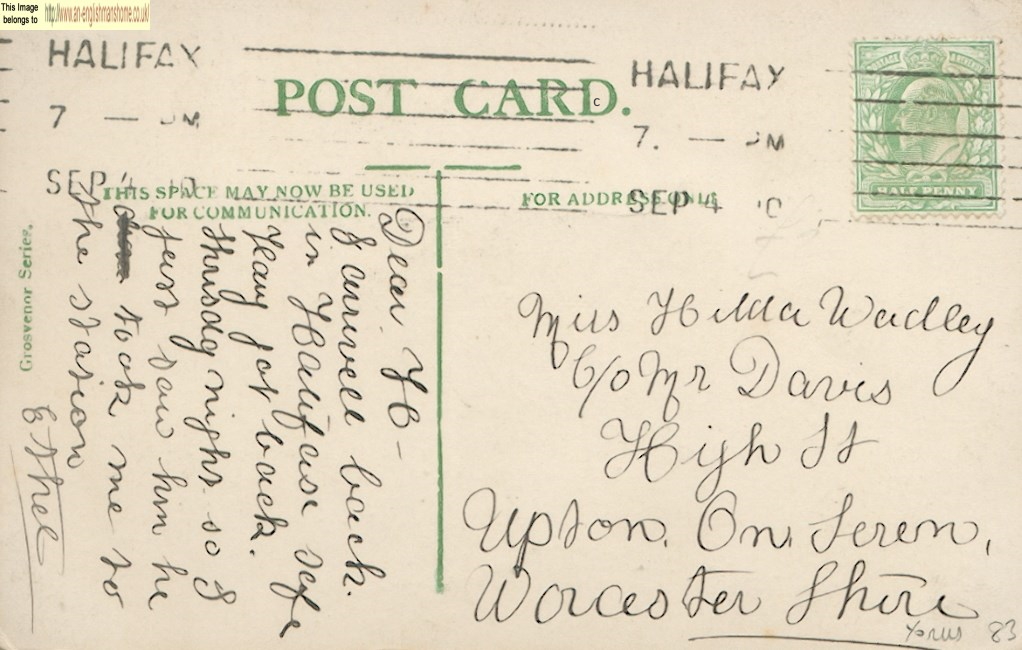 This Image
belongs to
http://www.an-englishmanshome.co.uk/
HALIFAX
7 — PM
SEP 4 10
HALIFAX
7. — PM
SEP 4 10
POST CARD.
C
HALF PENNY
THIS SPACE MAY NOW BE USED
FOR COMMUNICATION.
FOR ADDRESS ONLY
Grosvenor Series.
Dear H –
I arrived back
in Halifax safe
Harry got back.
thursdy night so I
just saw him he
took me to
the station
Ethel
Miss Hilda Wadley
c/o Mr Davis
High St
Upton. On. Seren,
Worcester Shire
Yorks 83